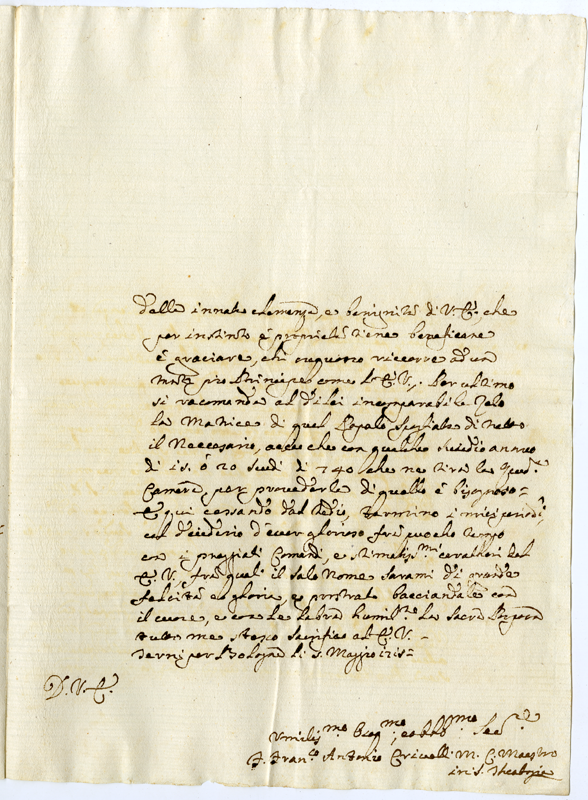 Dalla innata clemenza, e benignità di V. E. che
per instinto è proprietà tiene beneficare
è graciare, chi ricorre ad un
Principe come V. E. Per ultimo
si racomanda al di lei incomparabile Zelo
la di quel spogliata di tutto
il Neccesario, acciò che con qualche annuo
di 15. ò 20 scudi di 740 che ne tira la
Camera, per provederla di quello è bisognoso
E qui cessando dal tedio, termino i miei periodi,
col desiderio d'esser glorioso frà puocho tempo
con i pregiati Comandi, e stimatiss.mi caratteri del
E. V. frà quali il solo Nome sarami di grande
felicità e gloria, e prostrato bacciandole con
il cuore, e con le labra humil.te la Sacra Porpora
tutto me stesso sacrifico al E. V.
per Bologna li 5. Maggio
D. V. E.
Umilis.mo
F. Fran.co Antonio Crivelli M. C. Maestro